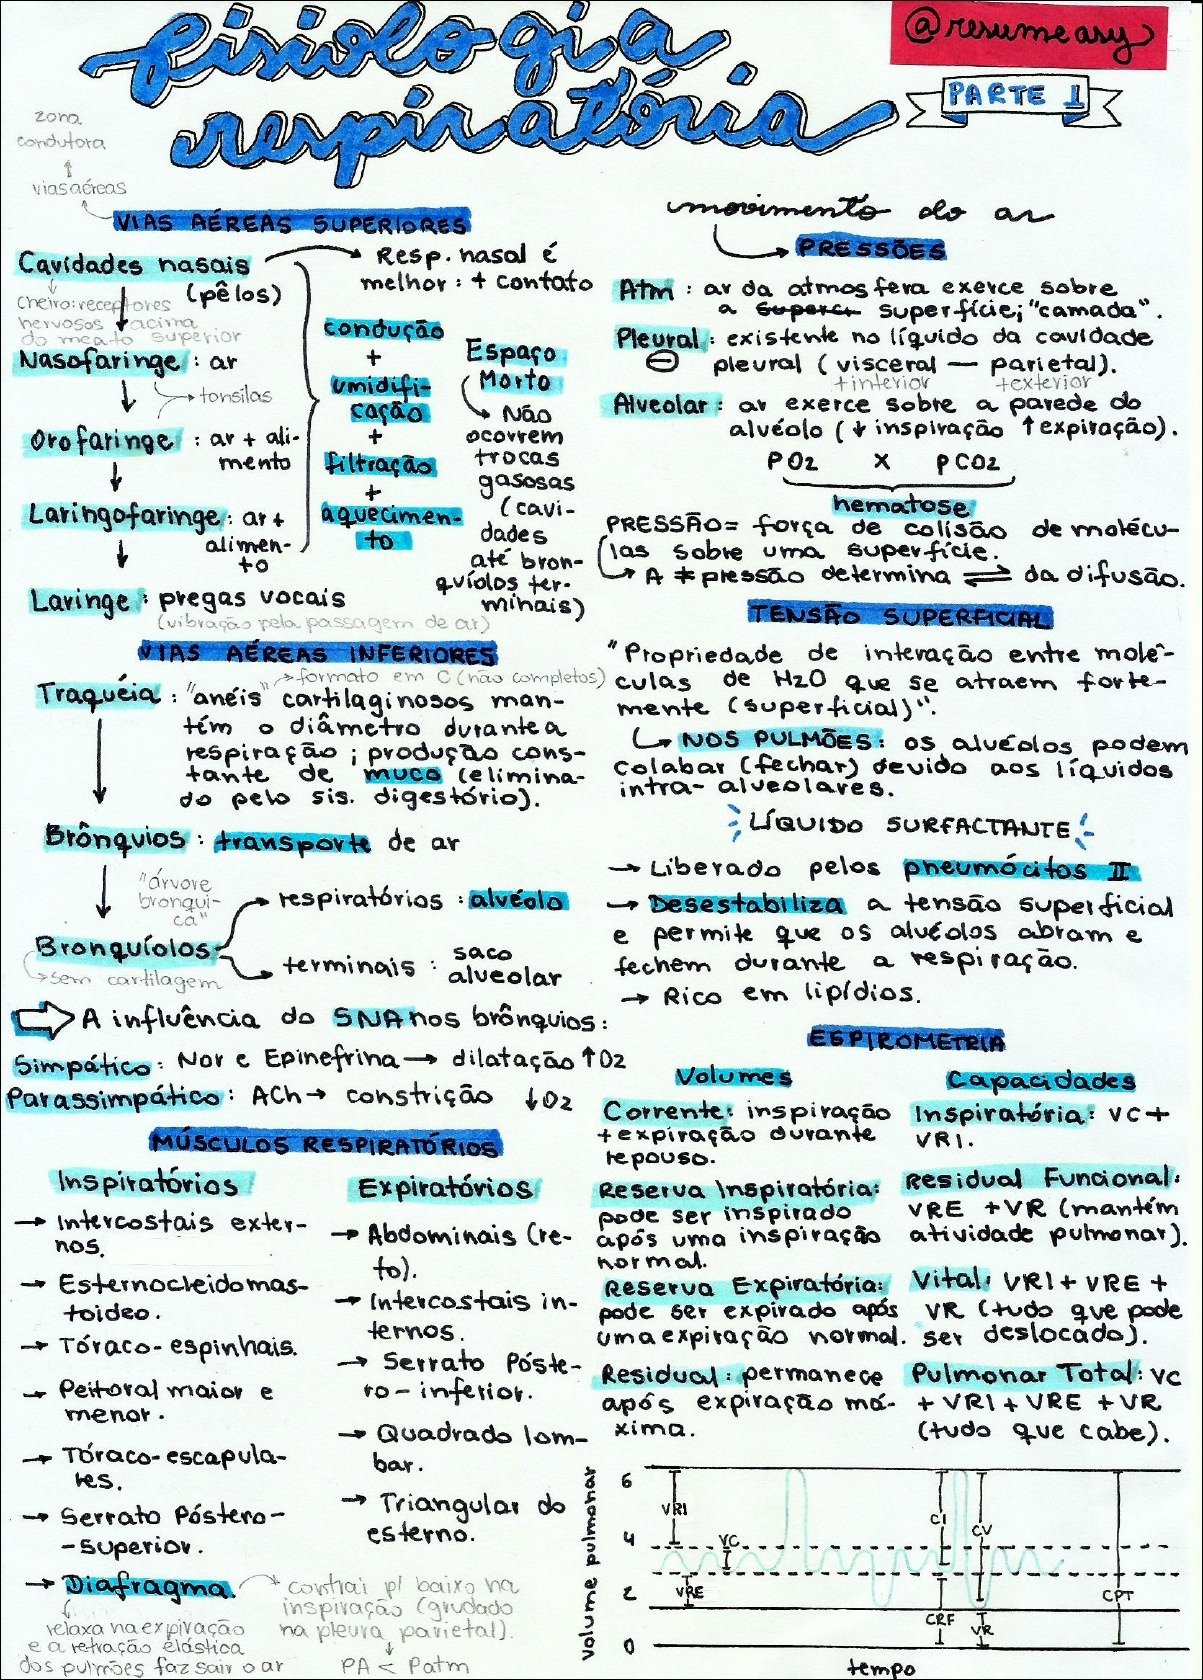 fisiologia
respiratória
@resumeasy
PARTE 1
zona
condutora
vias aéreas
VIAS AÉREAS SUPERIORES
Cavidades nasais
(pêlos)
cheiro: receptores
nervosos acima
do meato superior
Resp. nasal é
melhor: + contato
Nasofaringe: ar
tonsilas
Orofaringe: ar + ali-
mento
Laringofaringe: ar +
alimen-
to
Laringe: pregas vocais
(vibração pela passagem de ar)
condução
+
umidifi-
cação
+
filtração
+
aquecimen-
to
Espaço
Morto
Não
ocorrem
trocas
gasosas
(cavi-
dades
até bron-
quíolos ter-
minais)
VIAS AÉREAS INFERIORES
formato em C (não completos)
Traquéia: "anéis" cartilaginosos man-
têm o diâmetro durante a
respiração; produção cons-
tante de muco (elimina-
do pelo sis. digestório).
Brônquios: transporte de ar
"árvore
bronqui-
ca"
Bronquíolos
sem cartilagem
respiratórios: alvéolo
terminais: saco
alveolar
A influência do SNA nos brônquios:
Simpático: Nor e Epinefrina → dilatação ↑O2
Parassimpático: ACh → constrição ↓O2
MÚSCULOS RESPIRATÓRIOS
Inspiratórios
→ Intercostais exter-
nos.
→ Esternocleidomas-
toideo.
→ Tóraco-espinhais.
→ Peitoral maior e
menor.
→ Tóraco-escapula-
res.
→ Serrato Póstero-
-superior.
→ Diafragma.
relaxa na expiração
e a retração elástica
dos pulmões faz sair o ar
contrai p/ baixo na
inspiração (grudado
na pleura parietal).
PA < Patm
Expiratórios
→ Abdominais (re-
to).
→ Intercostais in-
ternos.
→ Serrato Póste-
ro-inferior.
→ Quadrado lom-
bar.
→ Triangular do
esterno.
movimento do ar
PRESSÕES
Atm: ar da atmosfera exerce sobre
a superfície; "camada".
Pleural: existente no líquido da cavidade
⊖ pleural (visceral — parietal).
+interior +exterior
Alveolar: ar exerce sobre a parede do
alvéolo (↓ inspiração ↑ expiração).
PO2 X PCO2
hematose
PRESSÃO = força de colisão de molécu-
las sobre uma superfície.
→ A ≠ pressão determina ⇌ da difusão.
TENSÃO SUPERFICIAL
"Propriedade de interação entre molé-
culas de H2O que se atraem forte-
mente (superficial)".
→ NOS PULMÕES: os alvéolos podem
colabar (fechar) devido aos líquidos
intra-alveolares.
LÍQUIDO SURFACTANTE
→ Liberado pelos pneumócitos II
→ Desestabiliza a tensão superficial
e permite que os alvéolos abram e
fechem durante a respiração.
→ Rico em lipídios.
ESPIROMETRIA
Volumes
Corrente: inspiração
+ expiração durante
repouso.
Reserva Inspiratória:
pode ser inspirado
após uma inspiração
normal.
Reserva Expiratória:
pode ser expirado após
uma expiração normal.
Residual: permanece
após expiração má-
xima.
Capacidades
Inspiratória: VC +
VRI.
Residual Funcional:
VRE + VR (mantém
atividade pulmonar).
Vital: VRI + VRE +
VR (tudo que pode
ser deslocado).
Pulmonar Total: VC
+ VRI + VRE + VR
(tudo que cabe).
volume pulmonar
6
4
2
0
VRI
VC
VRE
CI
CV
CRF
VR
CPT
tempo